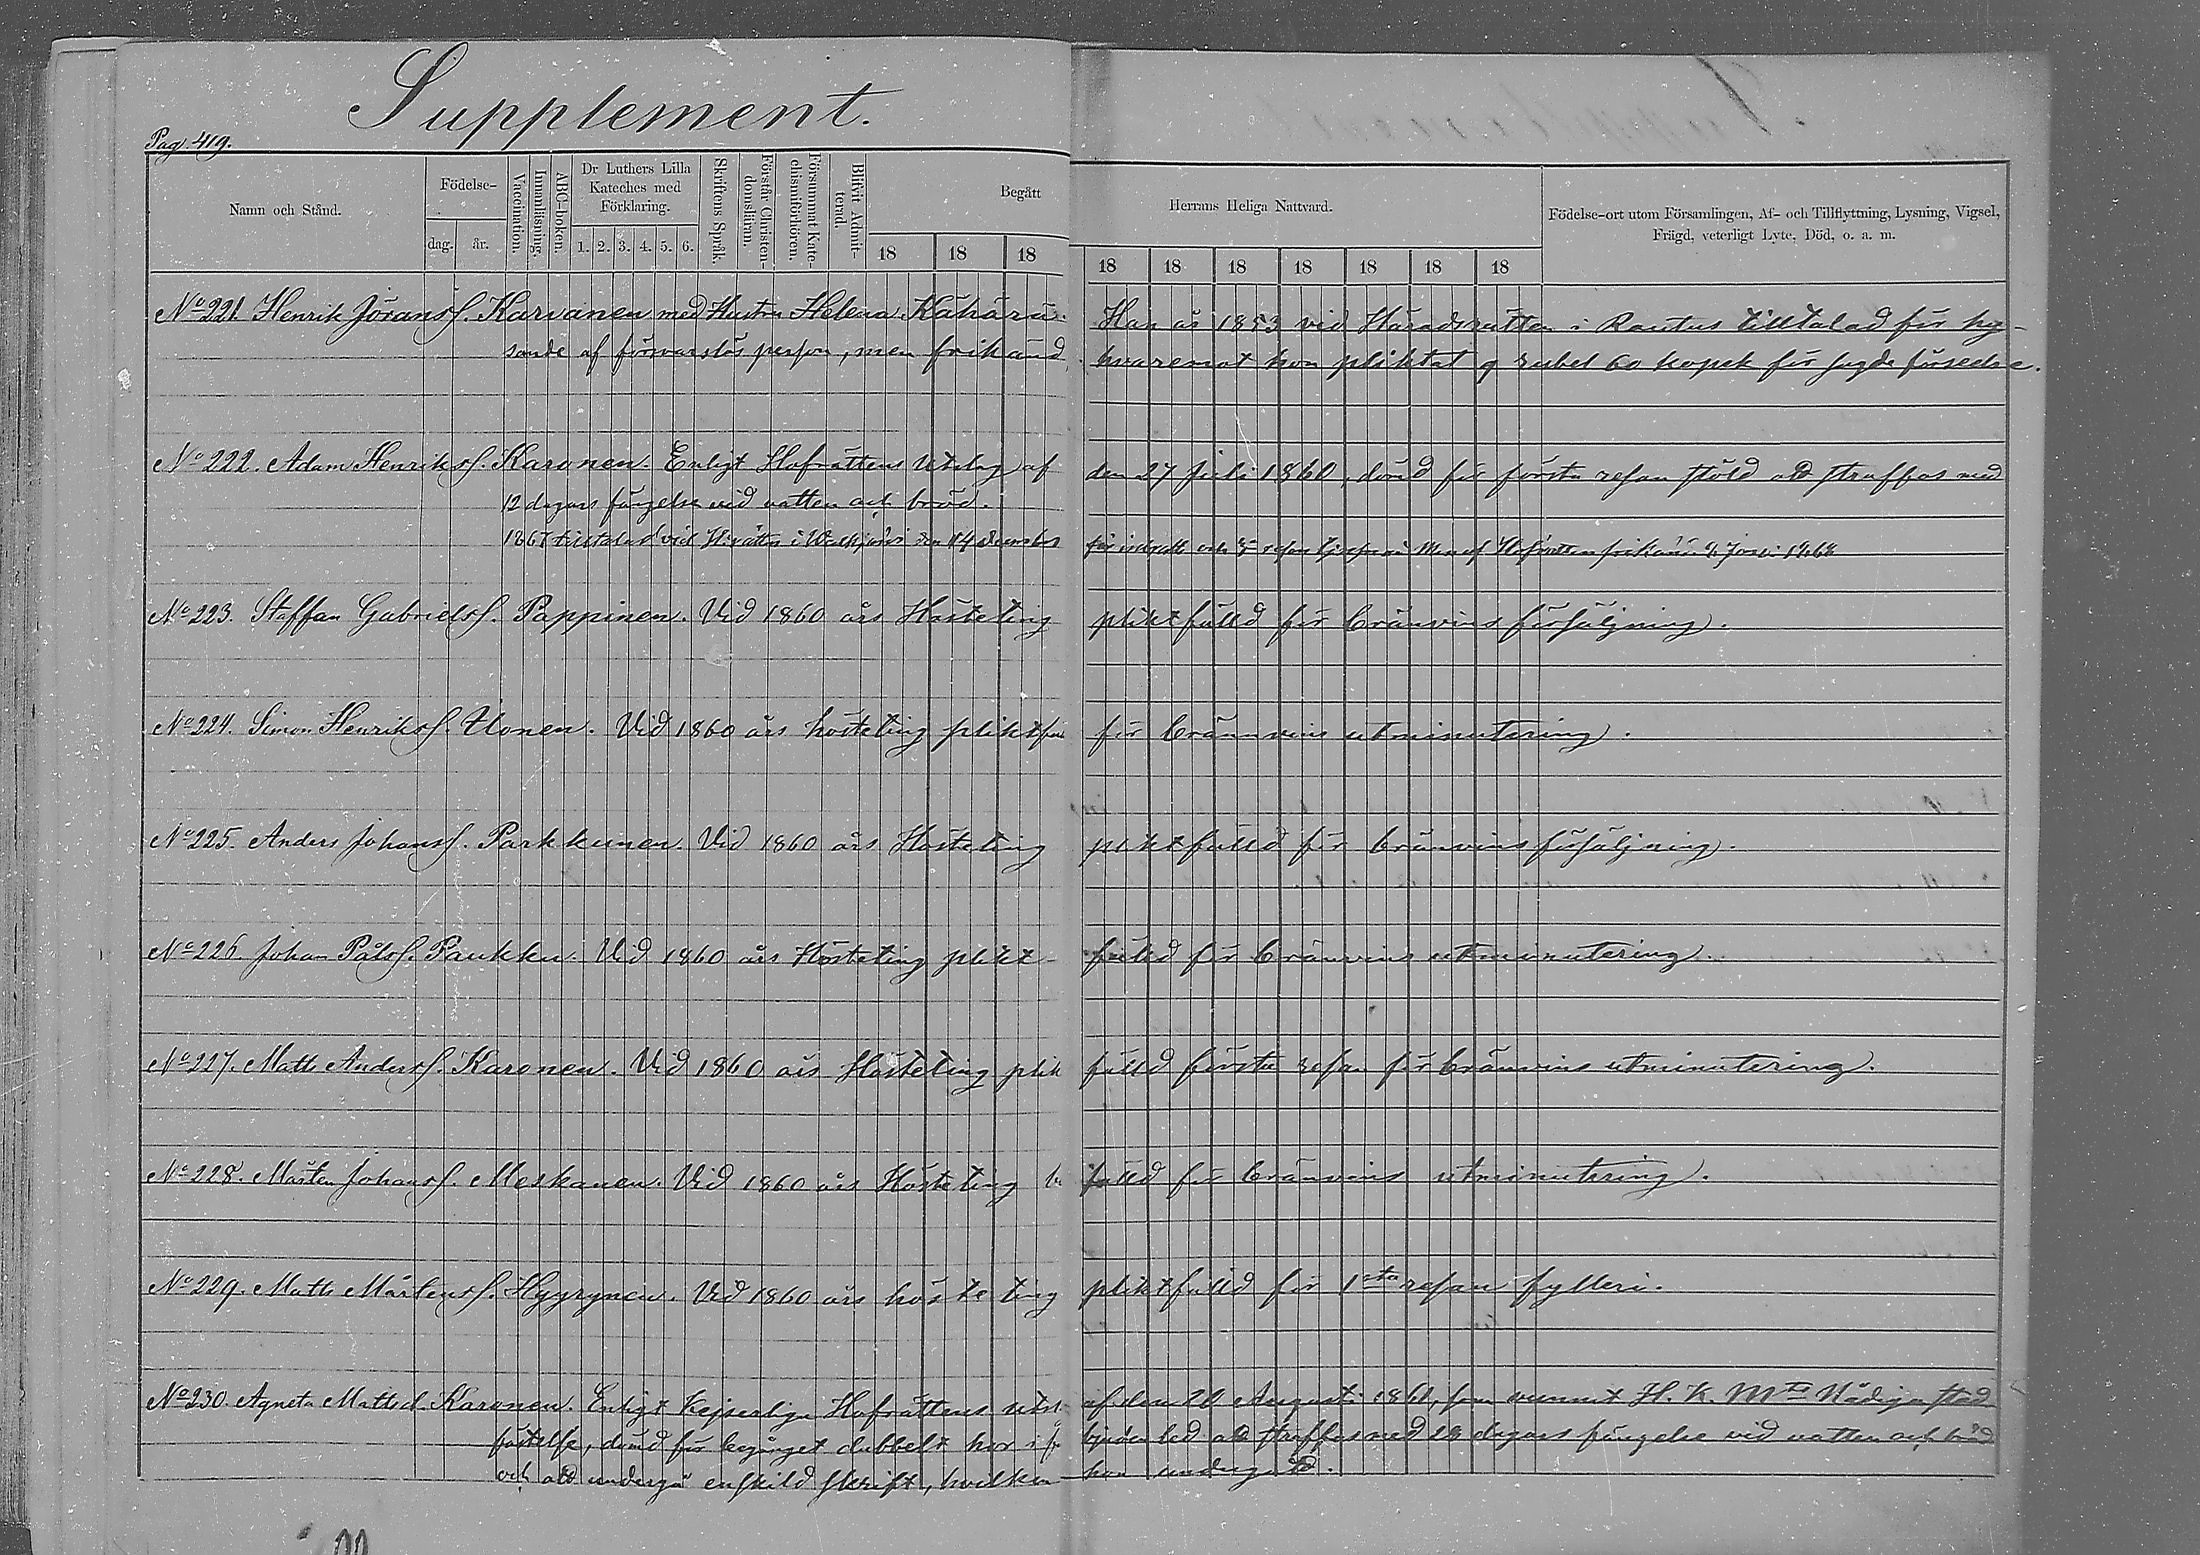 Supplement.
Pag. 419.
Namn och Stånd.
Födelse-
dag. år.
Vaccination.
Innanläsning.
ABC-boken.
Dr Luthers Lilla Kateches med Förklaring.
1. 2. 3. 4. 5. 6.
Skriftens Språk.
Förstår Christendomsläran.
Försummat Katechismiförhören.
Blifvit Admitterad.
Begått Herrans Heliga Nattvard.
18 18 18 18 18 18 18 18 18 18
Födelse-ort utom Församlingen, Af- och Tillflyttning, Lysning, Vigsel,
Frägd, veterligt Lyte, Död, o. a. m.
No 221. Henrik Jöranss. Karvanen med Hustru Helena Kähärä. Han är 1853 vid Häradsrätten i Rautus tilltalad för hy-
sande af försvarslös person, men frikänd, hvaremot hon pliktat 9 rubel 60 kopek för sagde förseelse.
No 222. Adam Henrikss. Karonen. Enligt Hofrättens Utslag af den 27 Juli 1860, dömd för första resan stöld att straffas med
12 dagars fängelse vid vatten och bröd.
1867 tilltalad vid H.rätten i den 14 december för och resan Men af Hofrätten frikänd 1868
No 223. Staffan Gabrielss. Pappinen. Vid 1860 års Hösteting pliktfälld för bränvins försäljning.
No 224. Simon Henrikss. Ilonen. Vid 1860 års hösteting pliktfäl för brännvins utminutering.
No 225. Anders Johanss. Parkkunen. Vid 1860 års Hösteting pliktfälld för bränvins försäljning.
No 226. Johan Pålss. Paukku. Vid 1860 års Hösteting plikt- fälld för bränvins utminutering.
No 227. Matts Anderss. Karonen. Vid 1860 års Hösteting plik fälld första resan för bränvins utminutering.
No 228. Mårten Johanss. Meskanen. Vid 1860 års Hösteting fälld för bränvins utminutering.
No 229. Matts Mårtenss. Hyyrynen. Vid 1860 års hösteting pliktfälld för 1sta resan fylleri.
No 230. Agneta Mattsd. Karonen. Enligt Kejserliga Hofrättens utsl. af den 20 Augusti 1861, som vunnit H. K. Mts Nådiga stad
fästelse, dömd för begånget dubbelt hor att straffas med 28 dagars fängelse vid vatten och bröd
och att undergå enskild skrift, hvilken hon undergått.